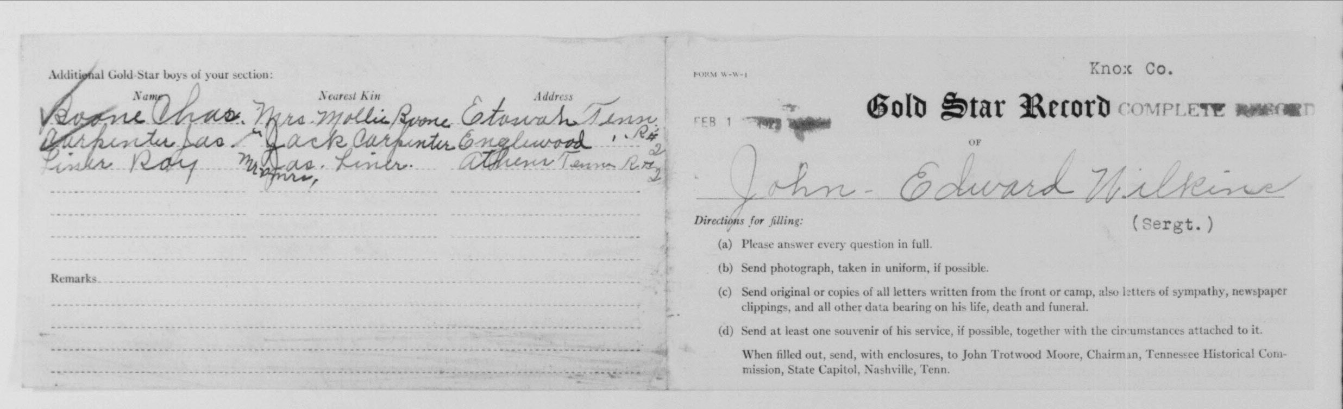 Additional Gold-Star boys of your section:
Name Nearest Kin Address
Boone Chas. Mrs. Mollie Boone Etowah Tenn.
Carpenter Jas. " Jack Carpenter Englewood " R#2
Liner Roy Mr & Mrs, Jas. Liner. Athens Tenn R#2
Remarks
FORM W-W-1
Knox Co.
FEB 1
Gold Star Record COMPLETE RECORD
OF
John - Edward Wilkins
(Sergt.)
Directions for filling:
(a) Please answer every question in full.
(b) Send photograph, taken in uniform, if possible.
(c) Send original or copies of all letters written from the front or camp, also letters of sympathy, newspaper
clippings, and all other data bearing on his life, death and funeral.
(d) Send at least one souvenir of his service, if possible, together with the circumstances attached to it.
When filled out, send, with enclosures, to John Trotwood Moore, Chairman, Tennessee Historical Com-
mission, State Capitol, Nashville, Tenn.